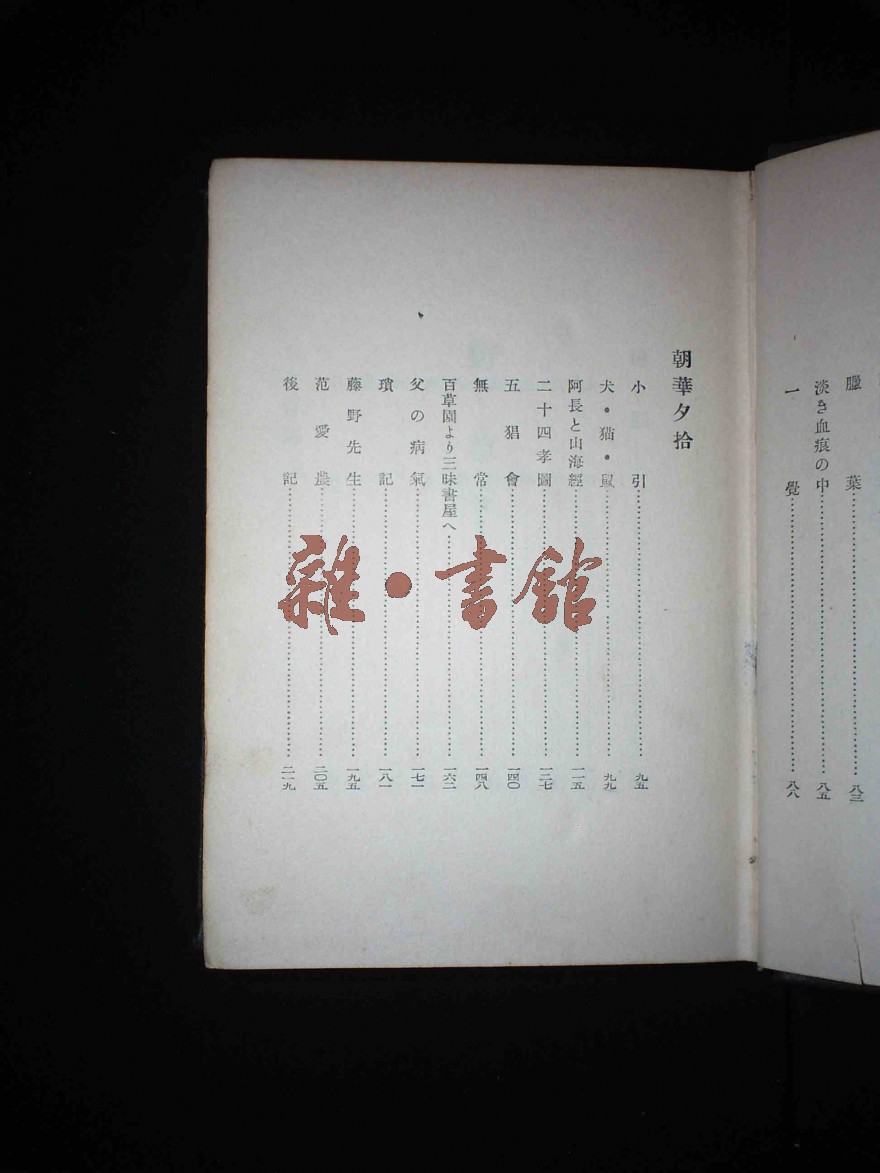 臘葉……八三
淡き血痕の中……八五
一覺……八八
朝華夕拾
小引……九五
犬・猫・鼠……九九
阿長と山海經……一一五
二十四孝圖……一二七
五猖會……一四〇
無常……一四八
百草園より三味書屋へ……一六二
父の病氣……一七一
瑣記……一八一
藤野先生……一九五
范愛農……二〇五
後記……二一九
雜・書館